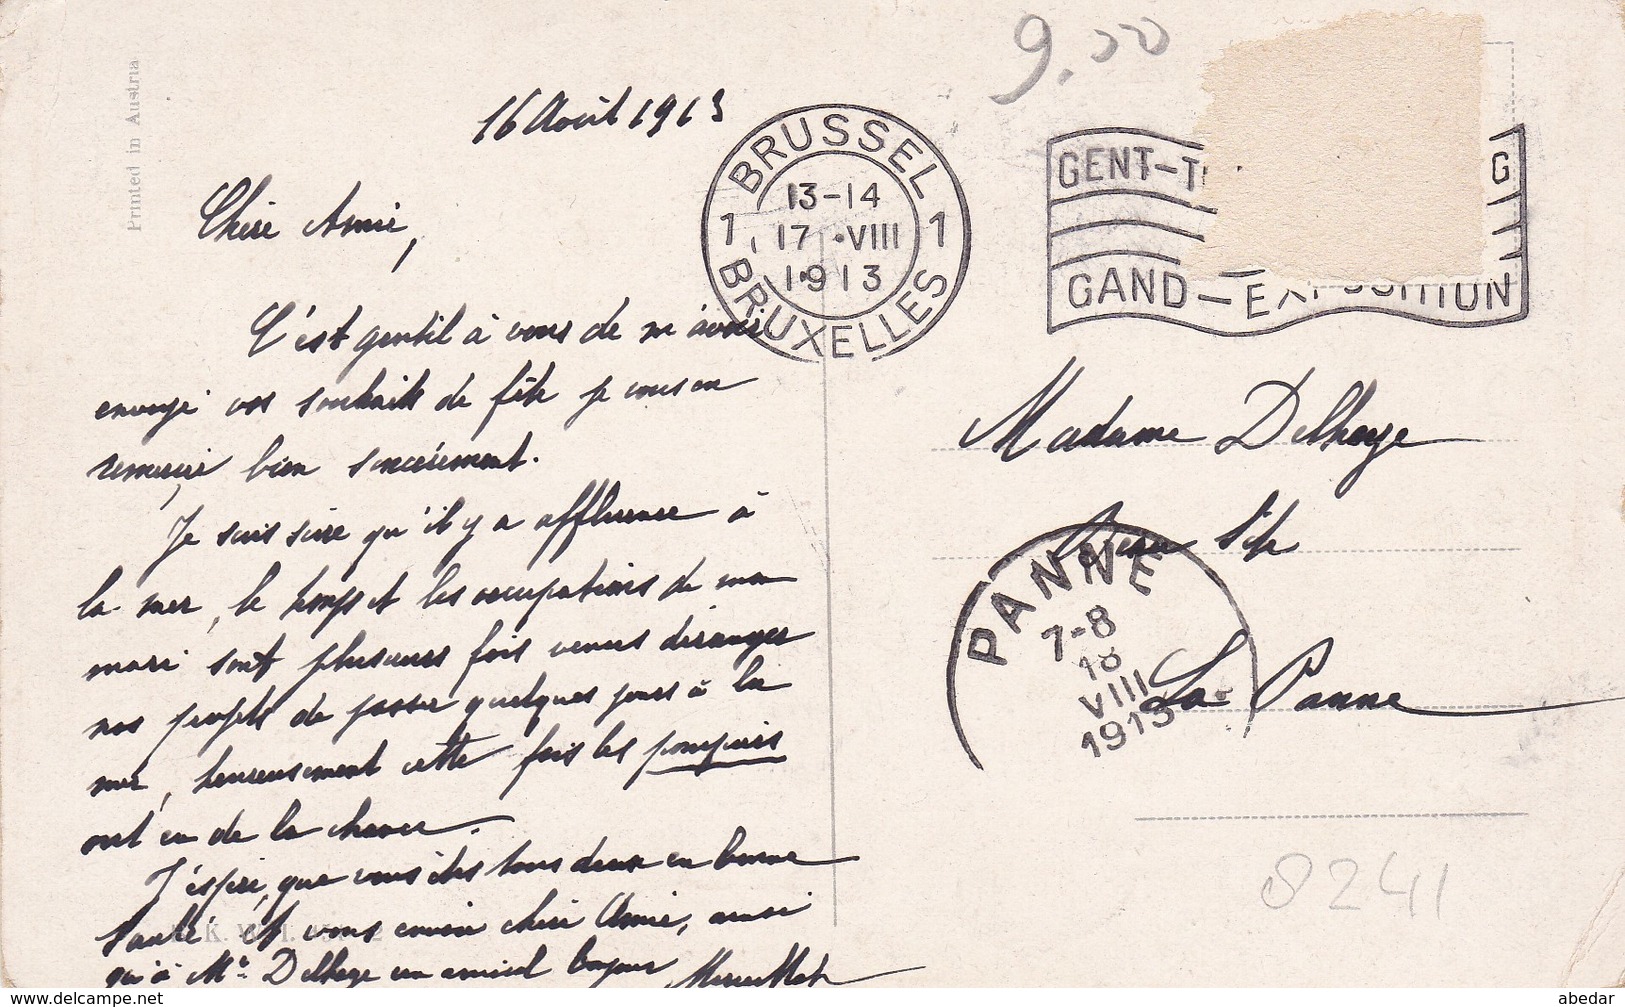 Printed in Austria
9.00
16 Août 1913
BRUSSEL
1 13-14 1
17 VIII
1913
BRUXELLES
GENT-T G
GAND-EXPOSITION
Chère Amie,
C'est gentil à vous de m'avoir
envoyé vos souhaits de fête je vous en
remercie bien sincèrement.
Je suis sûre qu'il y a affluence à
la mer, le temps et les occupations de mon
mari sont plusieurs fois venus déranger
nos projets de passer quelques jours à la
mer, heureusement cette fois les
ont eu de la chance.
J'espère que vous êtes tous deux en bonne
santé et vous envoie chère Amie, ainsi
qu'à Mr Delhaye un amical bonjour
Madame Delhaye
Beau Site
La Panne
PANNE
7-8
18
VIII
1913
8241
delcampe.net
abedar